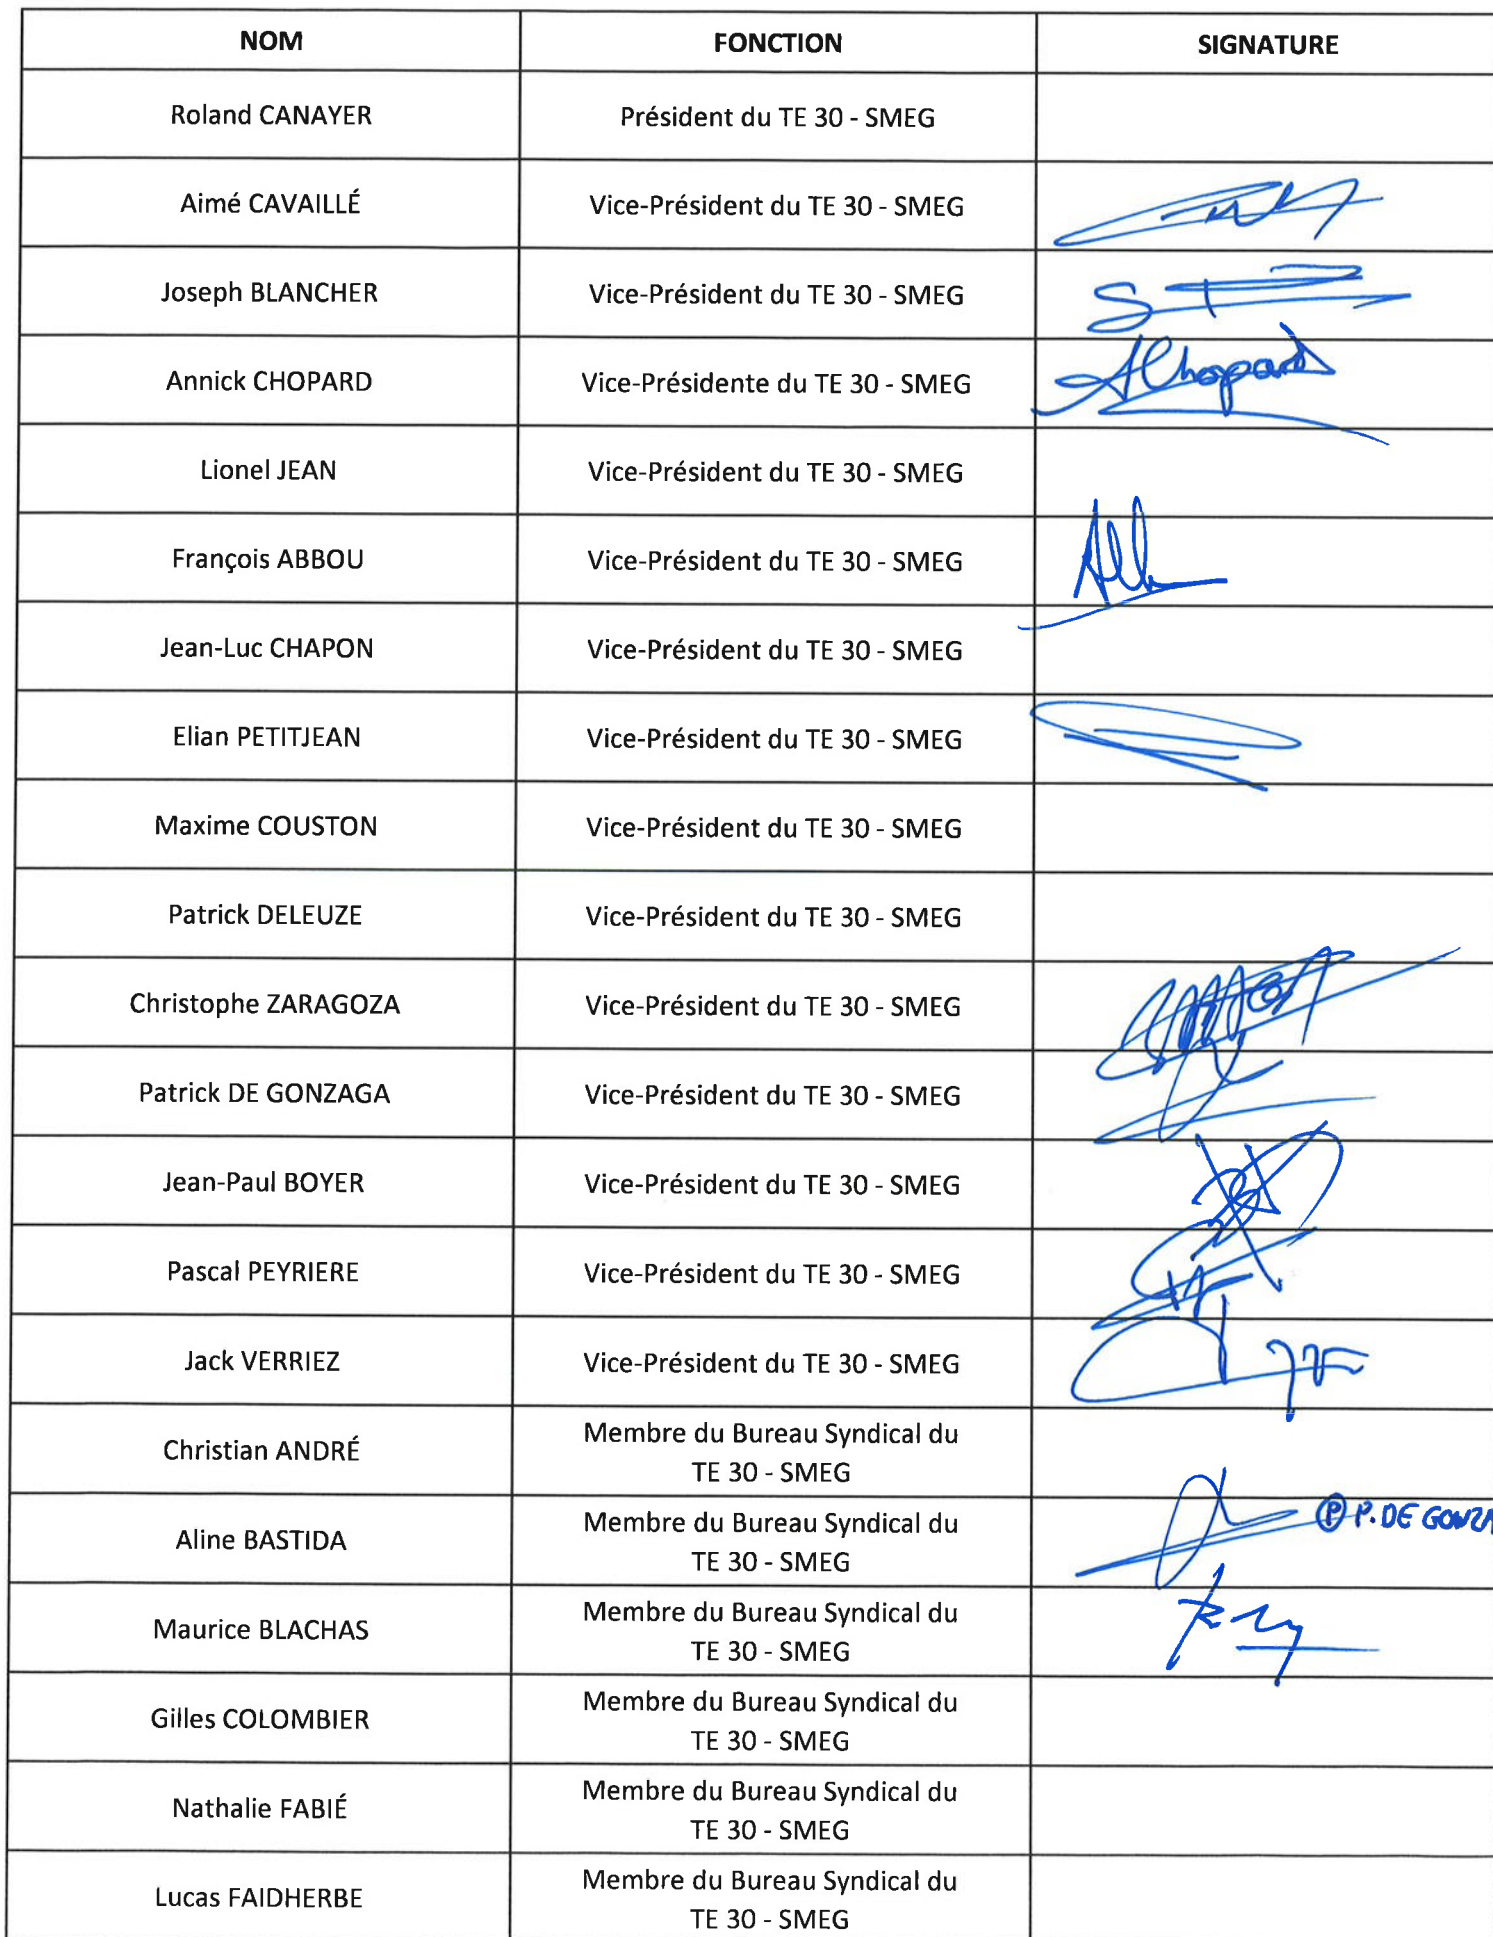 NOM FONCTION SIGNATURE
Roland CANAYER Président du TE 30 - SMEG
Aimé CAVAILLÉ Vice-Président du TE 30 - SMEG
Joseph BLANCHER Vice-Président du TE 30 - SMEG
Annick CHOPARD Vice-Présidente du TE 30 - SMEG AChopard
Lionel JEAN Vice-Président du TE 30 - SMEG
François ABBOU Vice-Président du TE 30 - SMEG
Jean-Luc CHAPON Vice-Président du TE 30 - SMEG
Elian PETITJEAN Vice-Président du TE 30 - SMEG
Maxime COUSTON Vice-Président du TE 30 - SMEG
Patrick DELEUZE Vice-Président du TE 30 - SMEG
Christophe ZARAGOZA Vice-Président du TE 30 - SMEG
Patrick DE GONZAGA Vice-Président du TE 30 - SMEG
Jean-Paul BOYER Vice-Président du TE 30 - SMEG
Pascal PEYRIERE Vice-Président du TE 30 - SMEG
Jack VERRIEZ Vice-Président du TE 30 - SMEG
Christian ANDRÉ Membre du Bureau Syndical du
TE 30 - SMEG
Aline BASTIDA Membre du Bureau Syndical du Ⓟ P. DE GONZA
TE 30 - SMEG
Maurice BLACHAS Membre du Bureau Syndical du
TE 30 - SMEG
Gilles COLOMBIER Membre du Bureau Syndical du
TE 30 - SMEG
Nathalie FABIÉ Membre du Bureau Syndical du
TE 30 - SMEG
Lucas FAIDHERBE Membre du Bureau Syndical du
TE 30 - SMEG